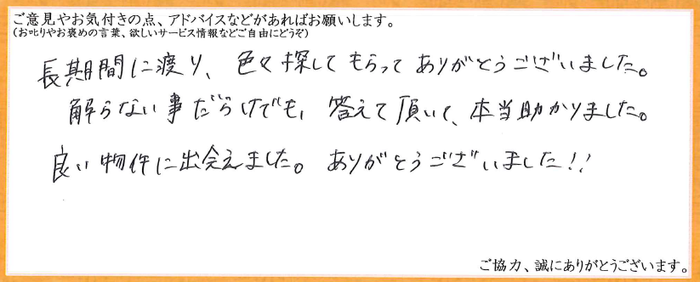 ご意見やお気付きの点、アドバイスなどがあればお願いします。
(お叱りやお褒めの言葉、欲しいサービス情報などご自由にどうぞ)
長期間に渡り、色々探してもらってありがとうございました。
解らない事だらけでも、答えて頂いて、本当助かりました。
良い物件に出会えました。ありがとうございました!!
ご協力、誠にありがとうございます。